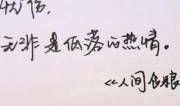 忧伤,
无非是低落的热情。
<<人间食粮